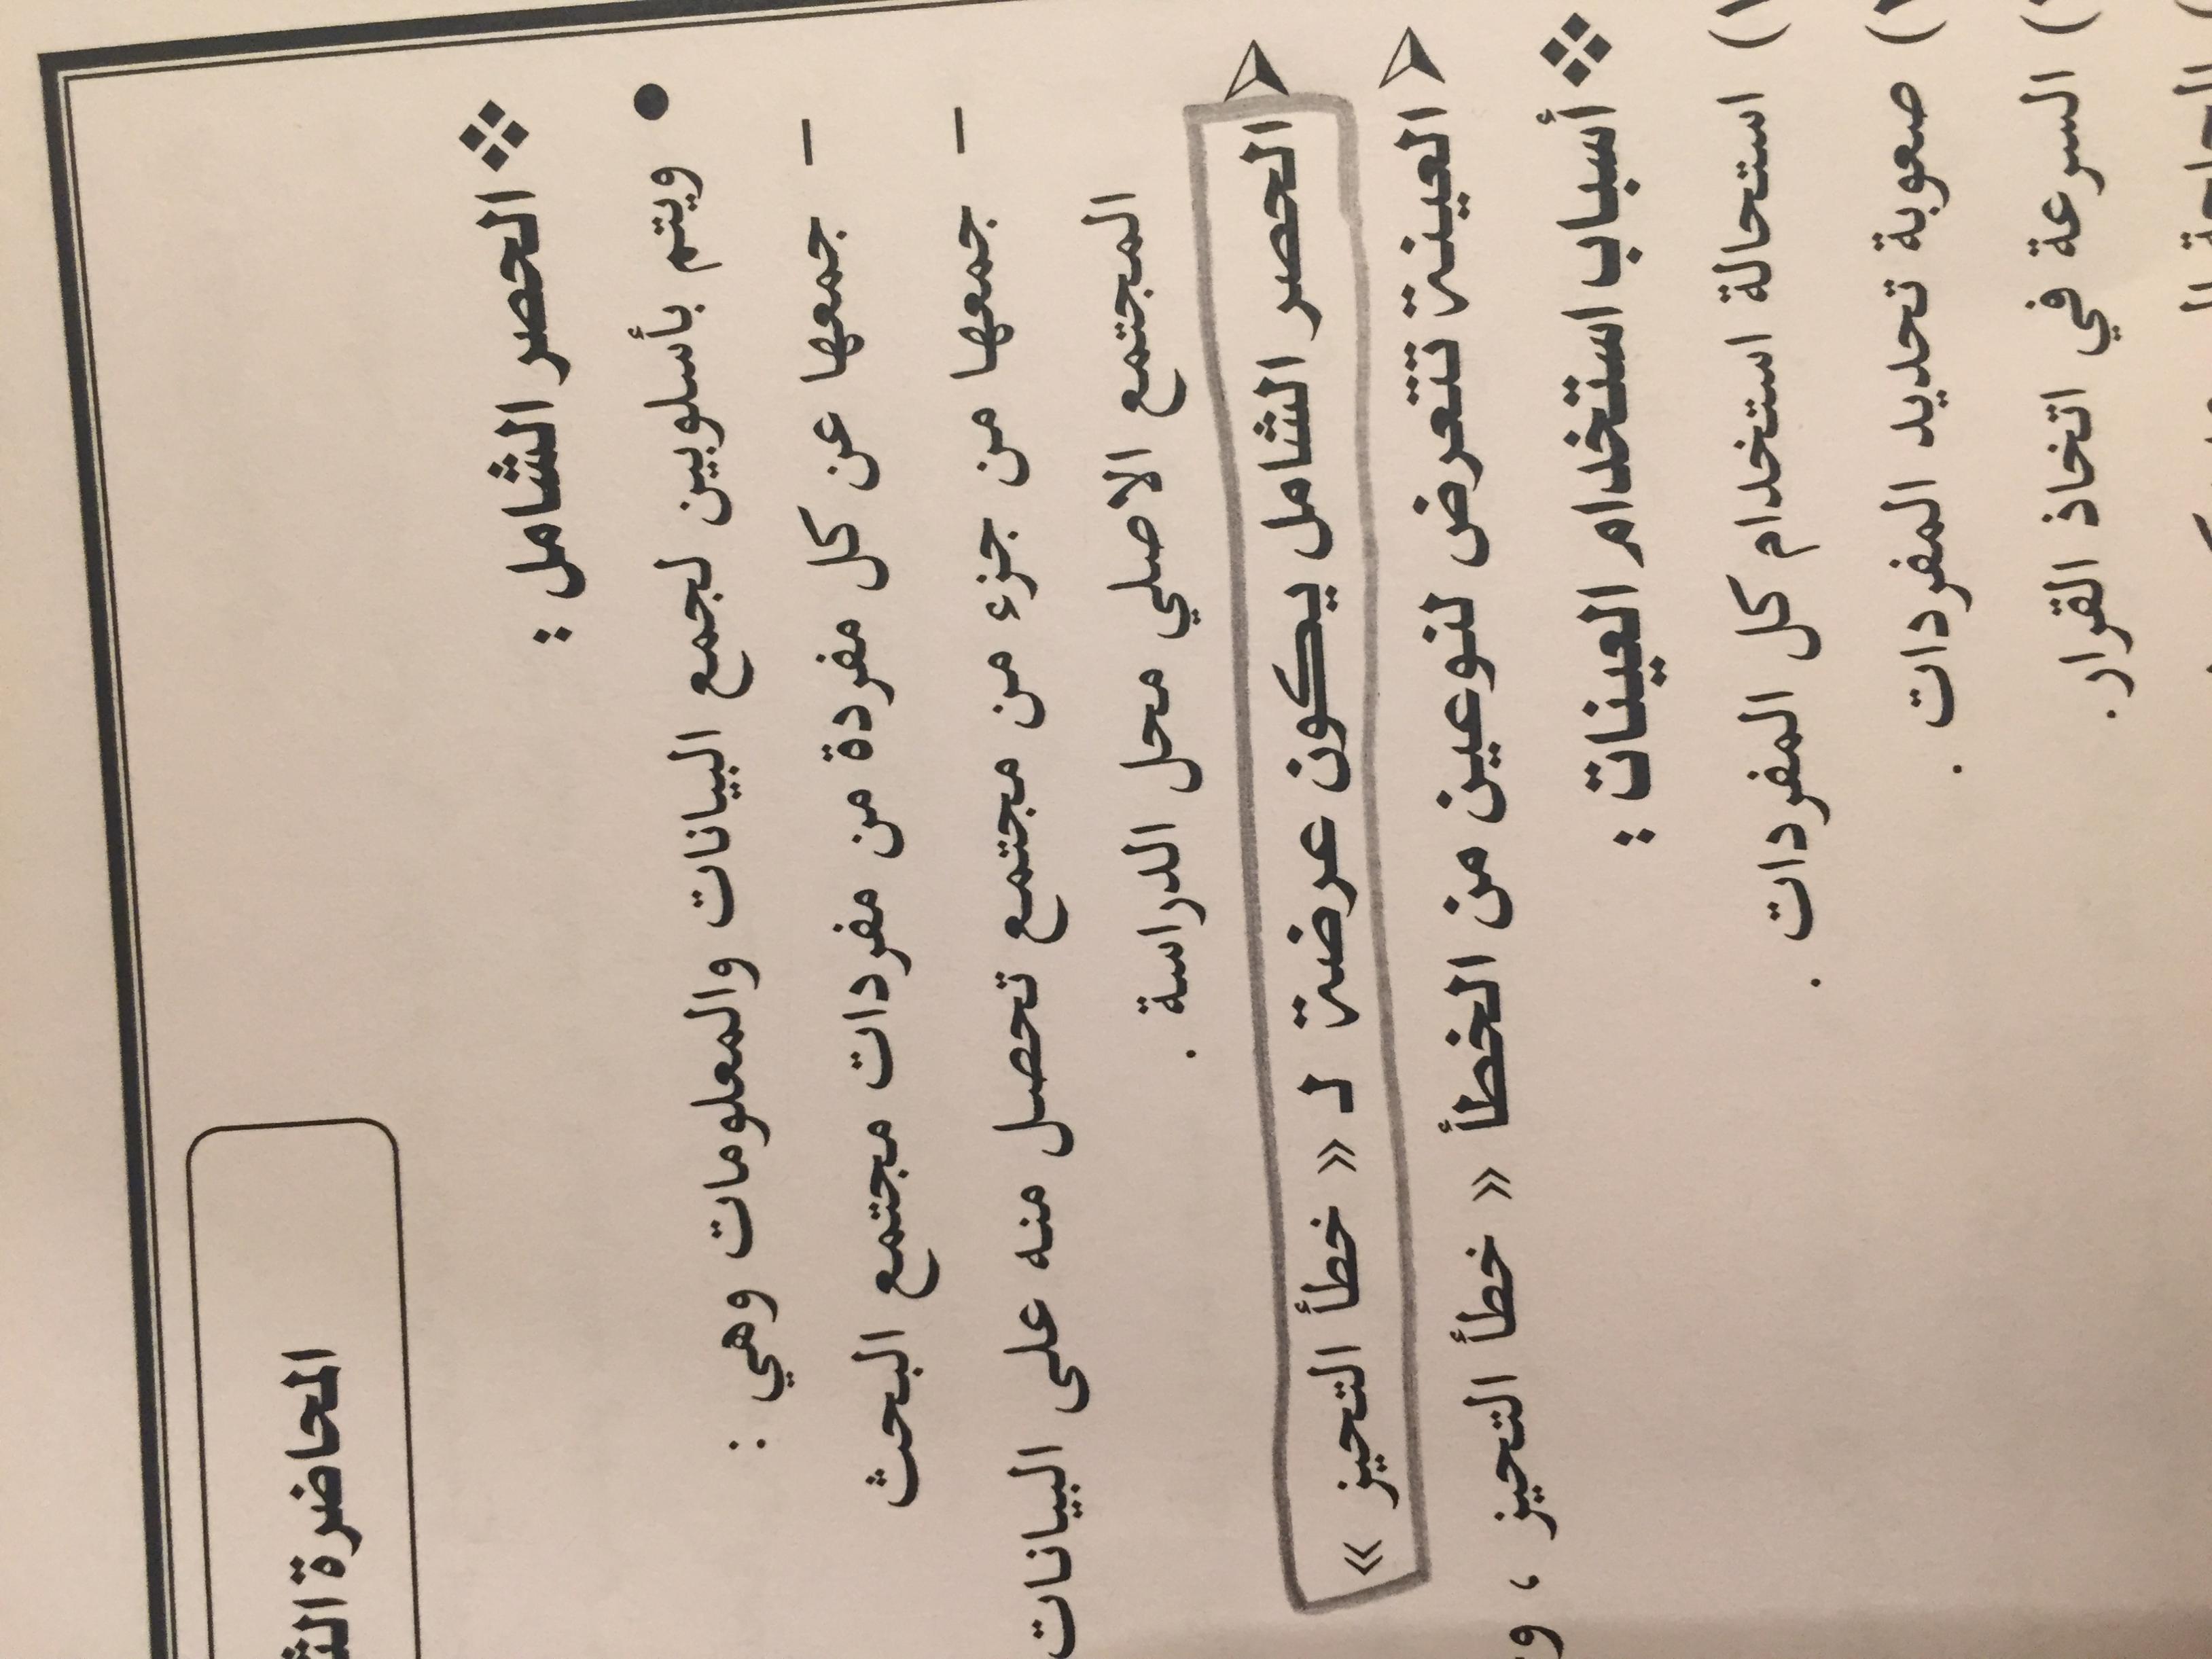 المحاضرة
الحصر الشامل :
ويتم بأسلوبين لجمع البيانات والمعلومات وهي :
– جمعها عن كل مفردة من مفردات مجتمع البحث
– جمعها من جزء من مجتمع تحصل منه على البيانات
المجتمع الاصلي محل الدراسة .
الحصر الشامل يكون عرضة لـ « خطأ التحيز »
العينة تتعرض لنوعين من الخطأ « خطأ التحيز ، و
أسباب استخدام العينات :
١) استحالة استخدام كل المفردات .
صعوبة تحديد المفردات .
السرعة في اتخاذ القرار.